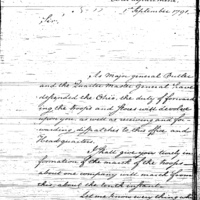 War department
No. 15 1st September 1791.
Sir,
As Major general Butler
and the Quarter Master General have
descended the Ohio, the duty of forward-
ing the troops and stores will devolve
upon you as well as receiving and for-
warding dispatches to this office and
Headquarters.
I shall give you timely in-
formation of the march of the troops
about one company will march from
this, about the tenth instant.
Let me know every thing